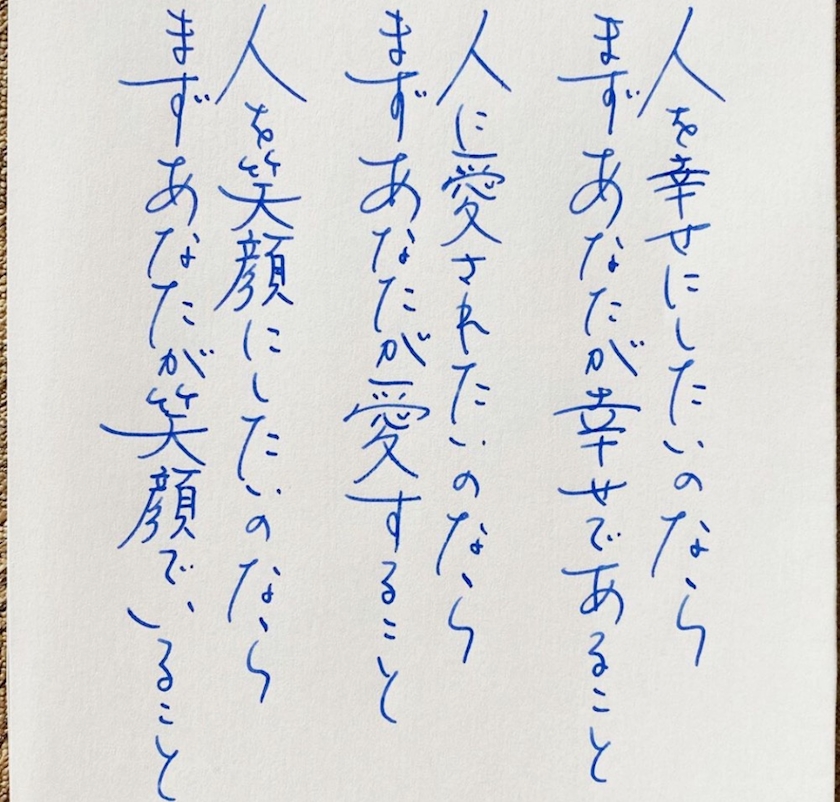 人を幸せにしたいのなら
まずあなたが幸せであること
人に愛されたいのなら
まずあなたが愛すること
人を笑顔にしたいのなら
まずあなたが笑顔でいること